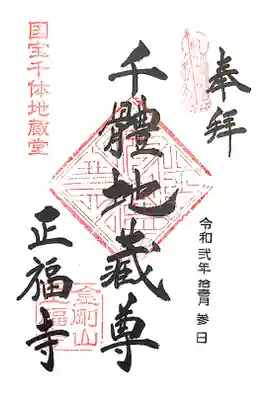 奉拝
令和弐年拾壱月参日
千體地蔵尊
正福寺
国宝千体地蔵堂
金剛山